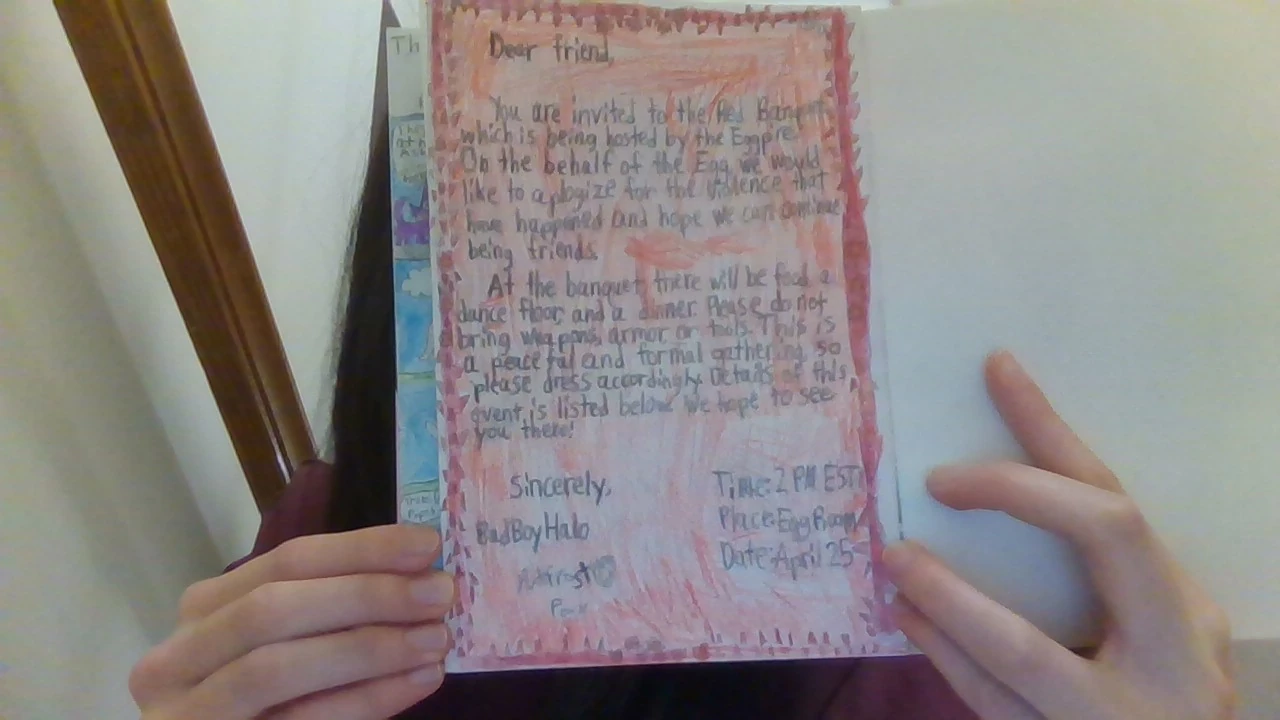 Dear friend,
You are invited to the Red Banquet
which is being hosted by the Eggpire.
On the behalf of the Egg we would
like to aplogize for the violence that
have happened and hope we can continue
being friends.
At the banquet, there will be food, a
dance floor, and a dinner. Please do not
bring weapons, armor or tools. This is
a peaceful and formal gathering, so
please dress accordingly. Details of this
event is listed below. We hope to see
you there!
Sincerely,
BadBoyHalo
Antfrost
Time: 2 PM EST
Place: Egg Room
Date: April 25
Th